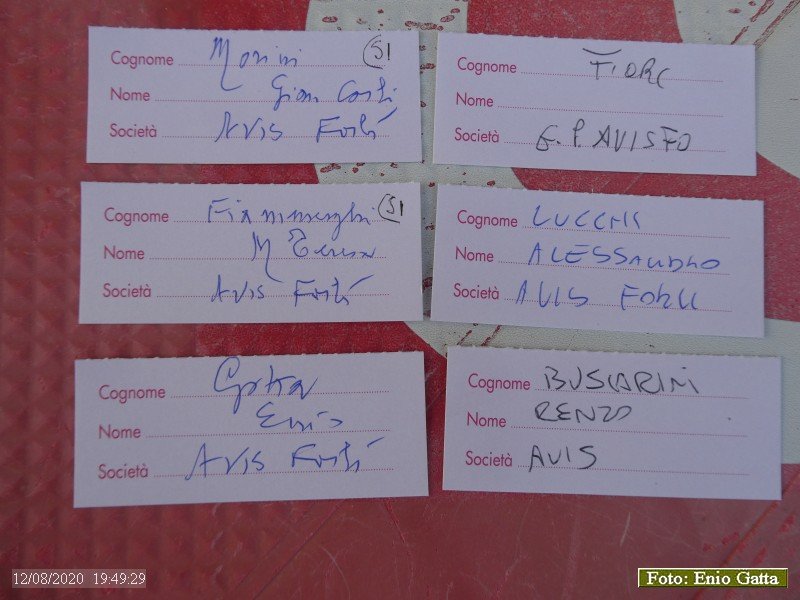 Cognome Morini S1
Nome Gian Carlo
Società Avis Forlì
Cognome FIORE
Nome
Società G. P AVIS FO
Cognome Fiammenghi S1
Nome M Teresa
Società Avis Forlì
Cognome LUCCHI
Nome ALESSANDRO
Società AVIS FORLI
Cognome Gatta
Nome Enio
Società Avis Forlì
Cognome BUSCARINI
Nome RENZO
Società AVIS
12/08/2020 19:49:29
Foto: Enio Gatta